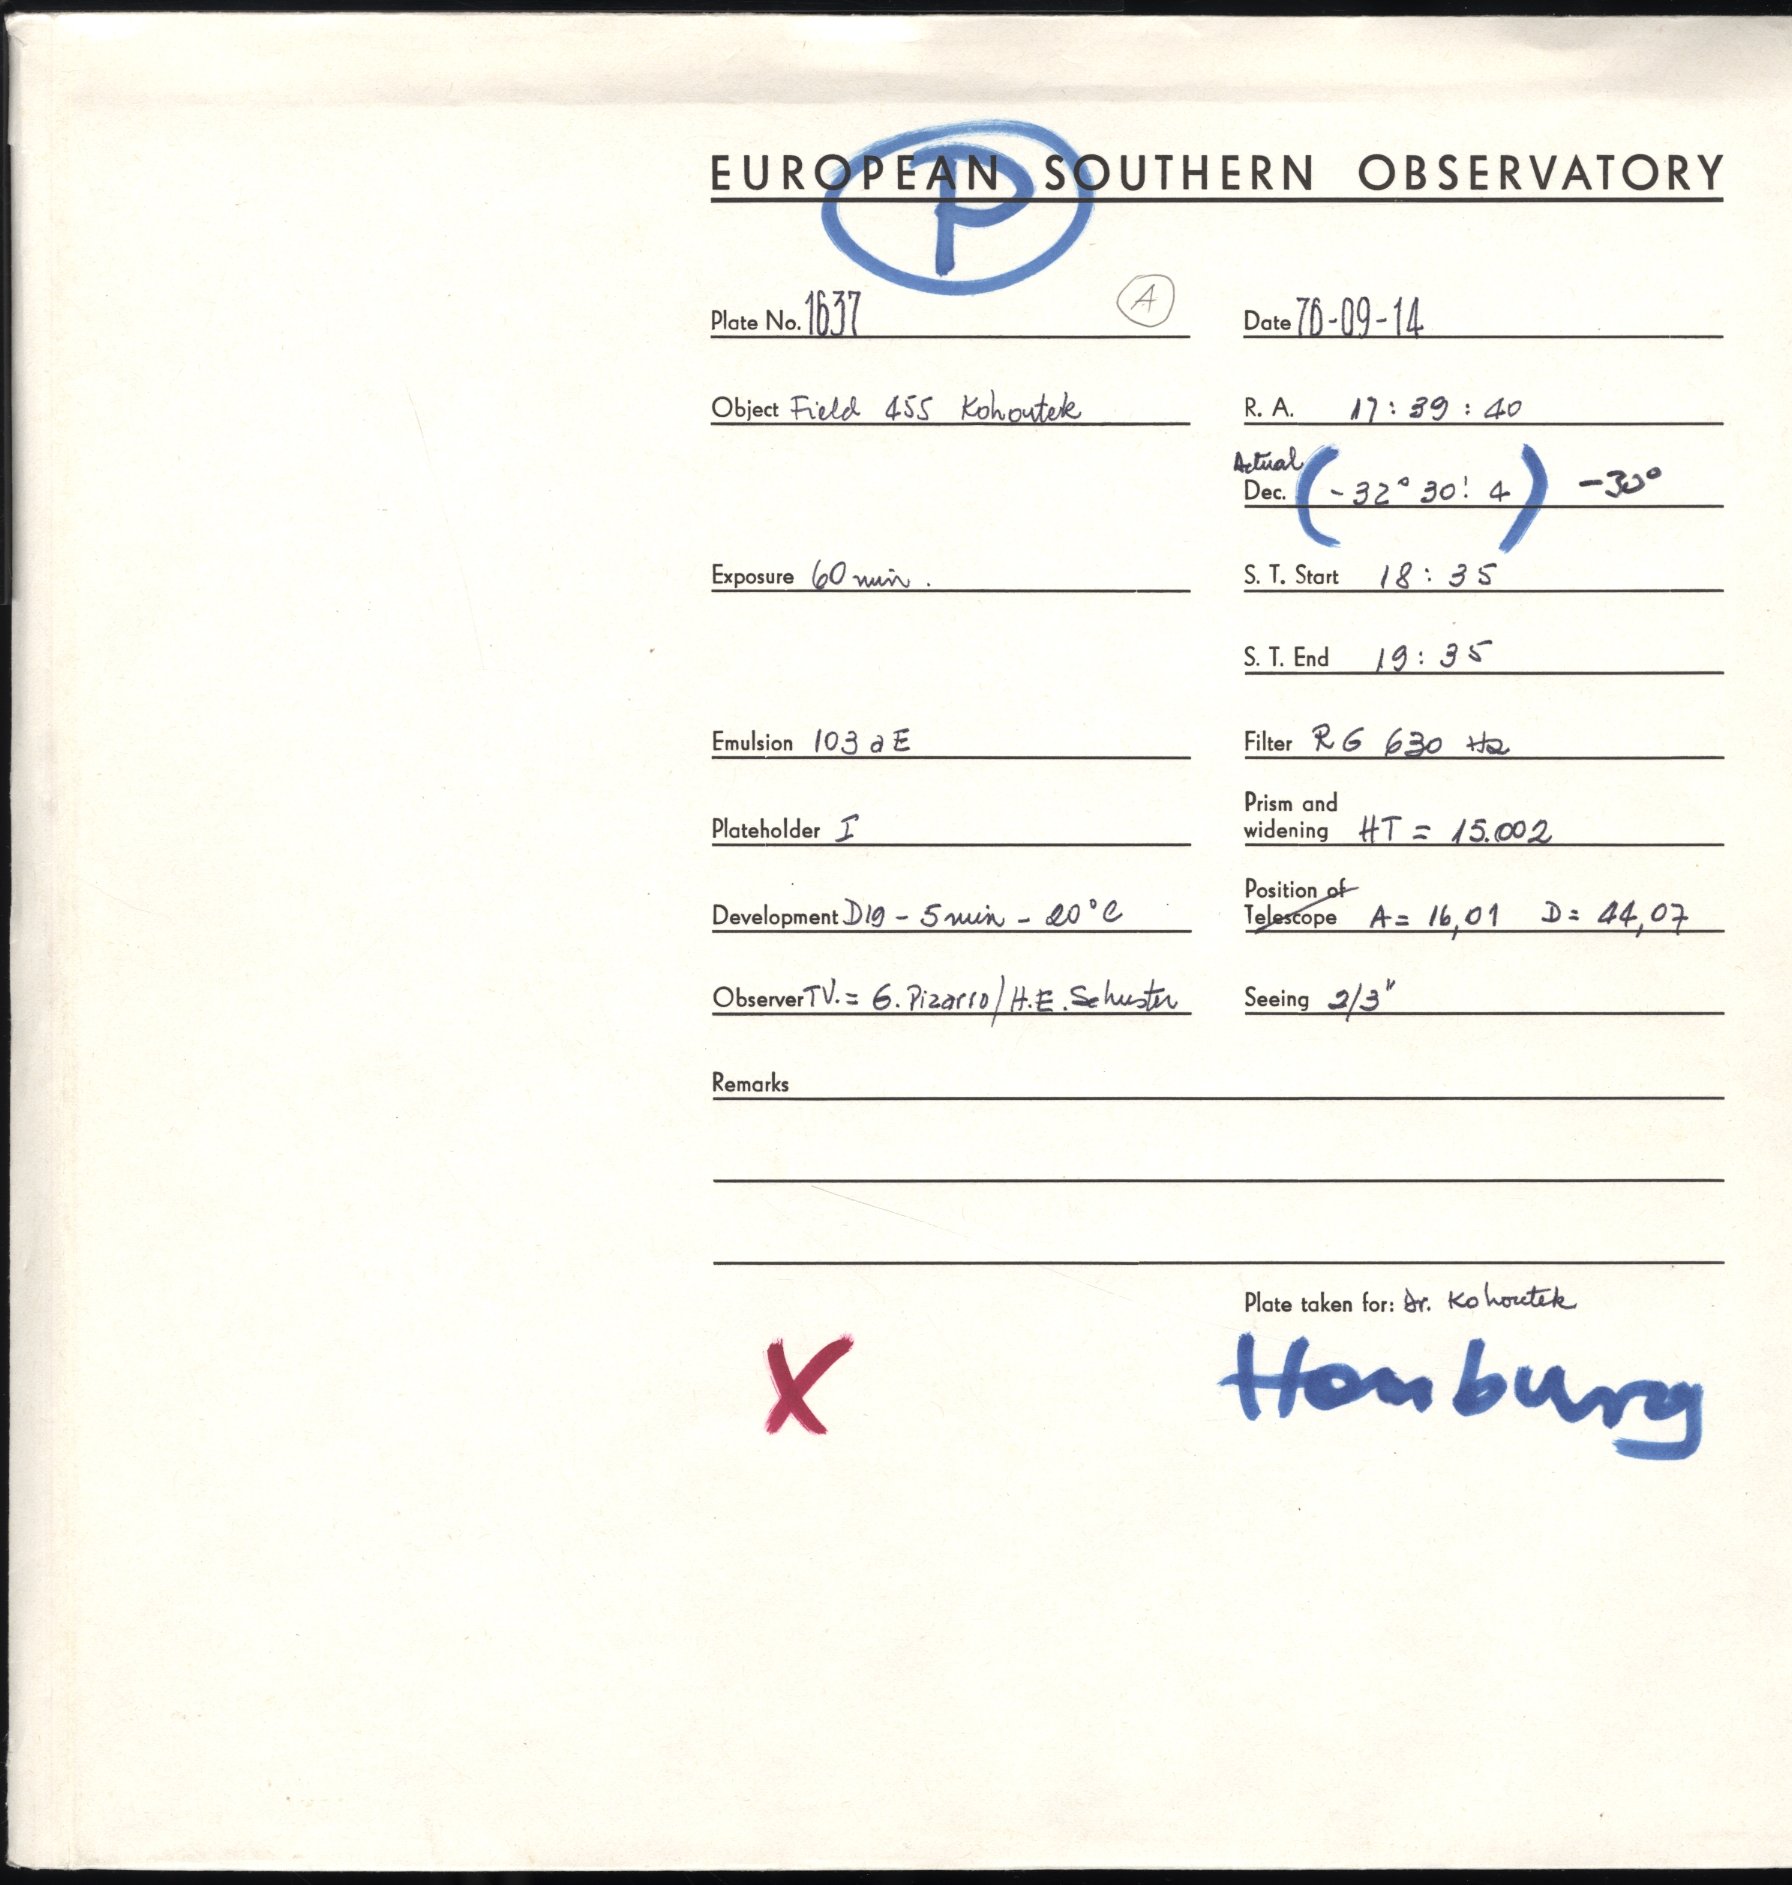 EUROPEAN SOUTHERN OBSERVATORY
P
Plate No. 1637
A
Date 76-09-14
Object Field 455 Kohoutek
R. A. 17 : 39 : 40
Actual
Dec. (- 32° 30! 4) -30°
Exposure 60 min.
S. T. Start 18 : 35
S. T. End 19 : 35
Emulsion 103 aE
Filter RG 630 Hα
Plateholder I
Prism and
widening HT = 15.002
Development D19 - 5 min - 20°C
Position of
Telescope A = 16,01 D = 44,07
Observer TV. = G. Pizarro / H.E. Schuster
Seeing 2/3"
Remarks
Plate taken for: Dr. Kohoutek
X
Hamburg